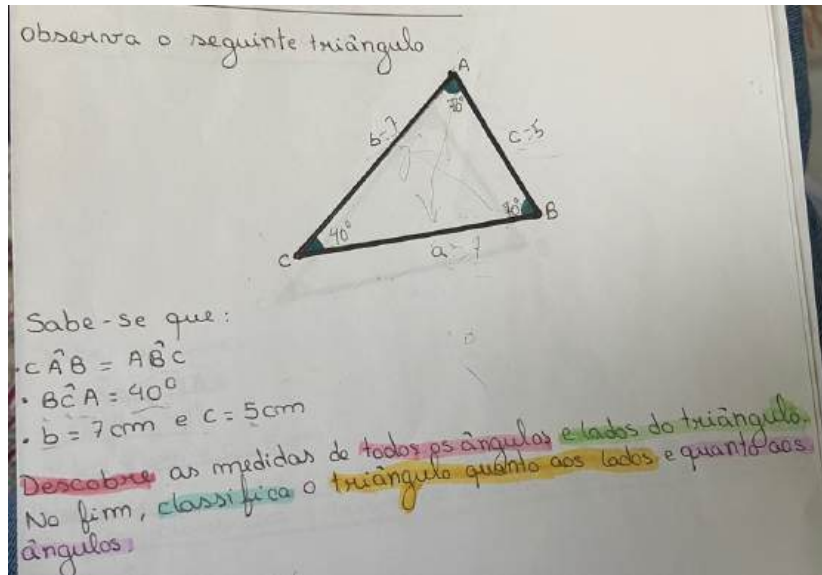 Observa o seguinte triângulo
A
70°
b=7
c=5
70°
B
40°
C
a=7
Sabe-se que:
• CÂB = AB̂C
• BĈA = 40°
• b = 7cm e c = 5cm
Descobre as medidas de todos os ângulos e lados do triângulo.
No fim, classifica o triângulo quanto aos lados e quanto aos
ângulos.